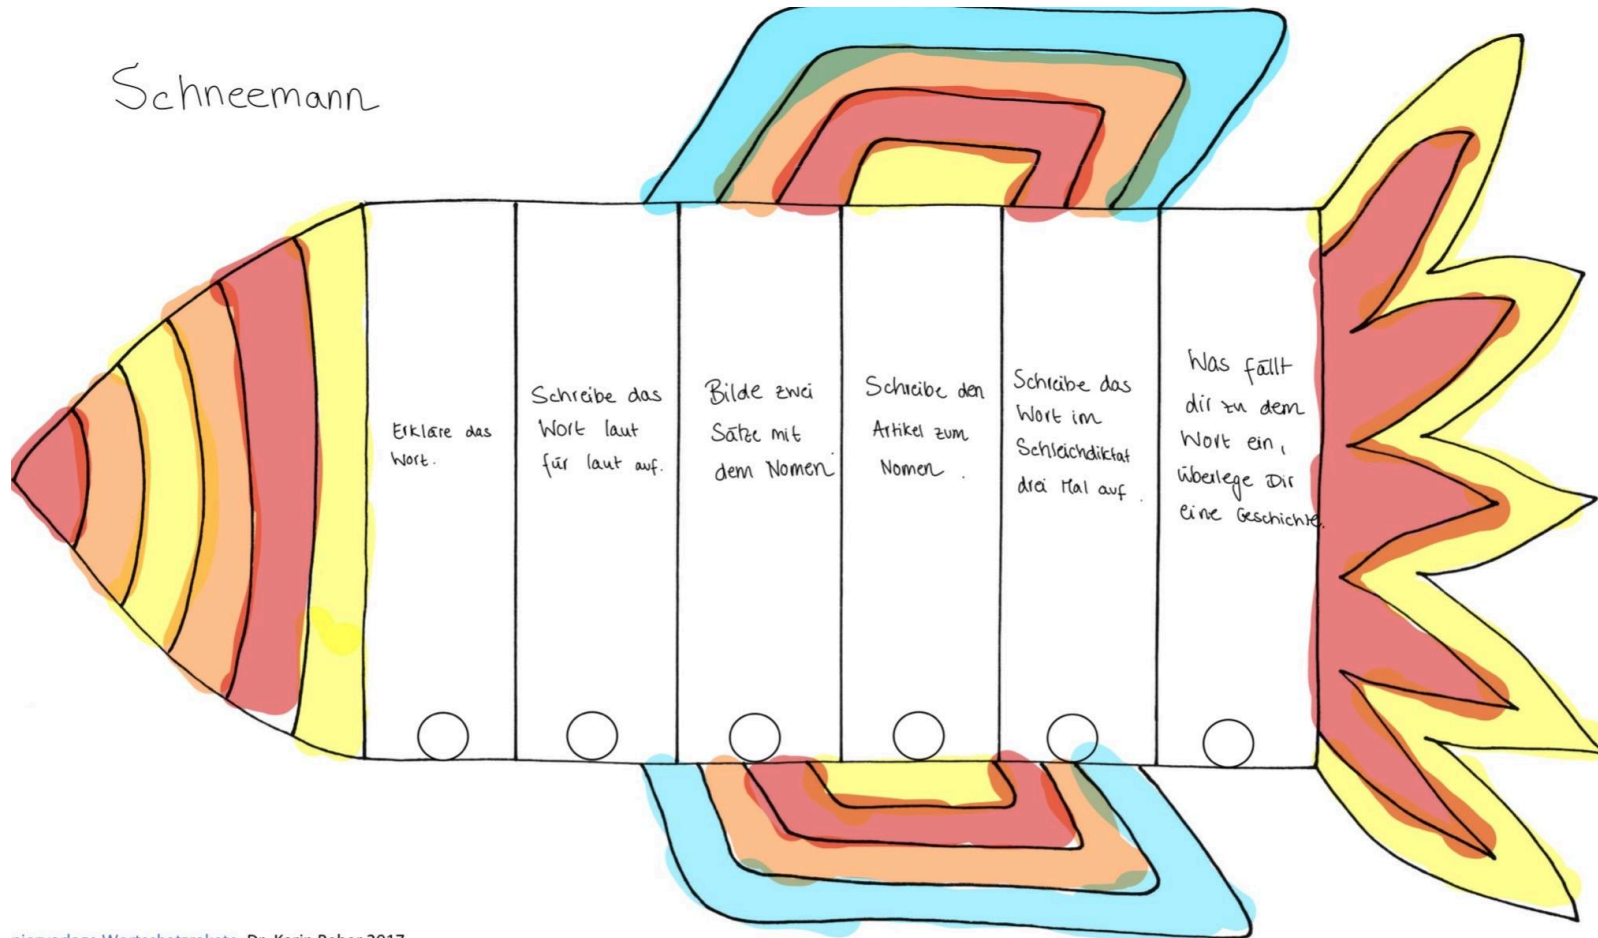 Schneemann
Erkläre das
Wort.
Schreibe das
Wort laut
für laut auf.
Bilde zwei
Sätze mit
dem Nomen
Schreibe den
Artikel zum
Nomen .
Schreibe das
Wort im
Schleichdiktat
drei Mal auf .
Was fällt
dir zu dem
Wort ein,
überlege Dir
eine Geschichte.